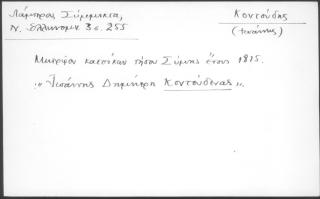 Λάμπρος Σύμμικτα,
Ν. Ελληνομν. 3 σ. 255
Κοντούδης
(Ιωάννης)
Μητρῷον κατοίκων νήσου Σύμης ἔτους 1815.
"Ἰωάννης Δημήτρη Κοντούδενας".